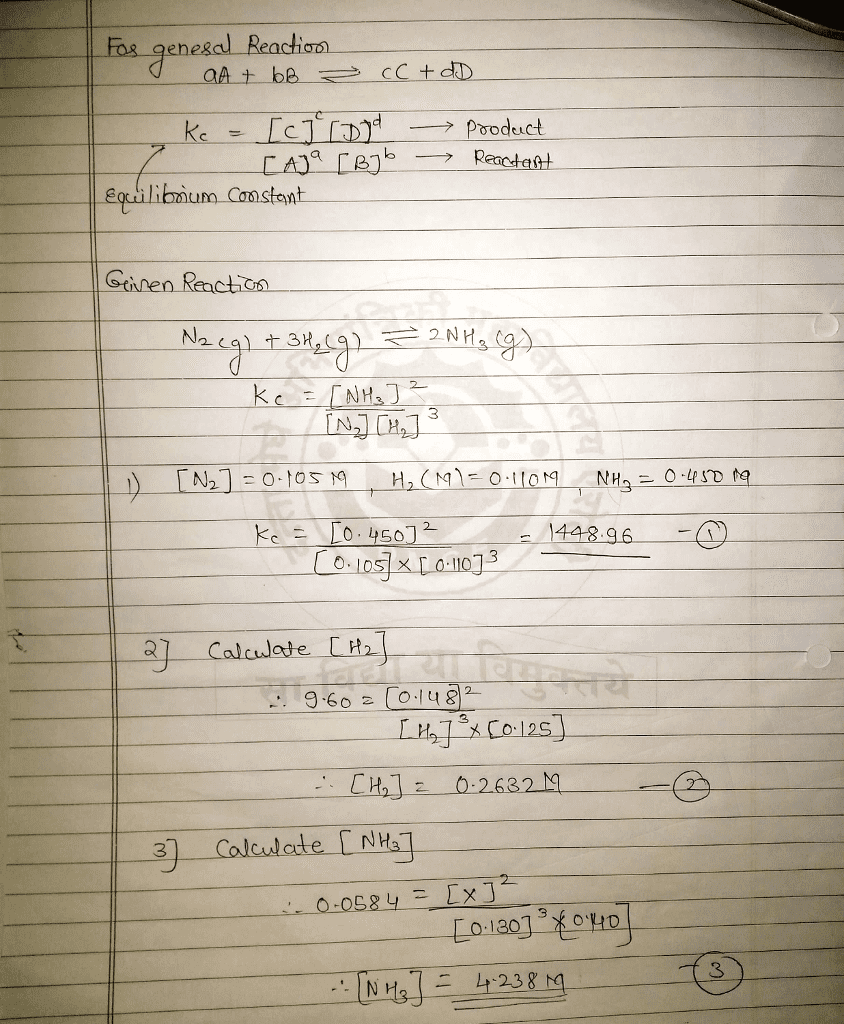 For general Reaction
aA + bB ⇌ cC + dD
Kc = [C]^c [D]^d → Product
[A]^a [B]^b → Reactant
Equilibrium Constant
Given Reaction
N₂(g) + 3H₂(g) ⇌ 2NH₃(g)
Kc = [NH₃]²
[N₂] [H₂]³
1) [N₂] = 0.105 M , H₂(M) = 0.110M , NH₃ = 0.450 M
Kc = [0.450]² = 1448.96 - ①
[0.105] × [0.110]³
2] Calculate [H₂]
∴ 9.60 = [0.148]²
[H₂]³ × [0.125]
∴ [H₂] = 0.2632 M — ②
सा विद्या या विमुक्तये
3] Calculate [NH₃]
∴ 0.0584 = [x]²
[0.130]³ × 0.140]
∴ [NH₃] = 4.238 M — ③